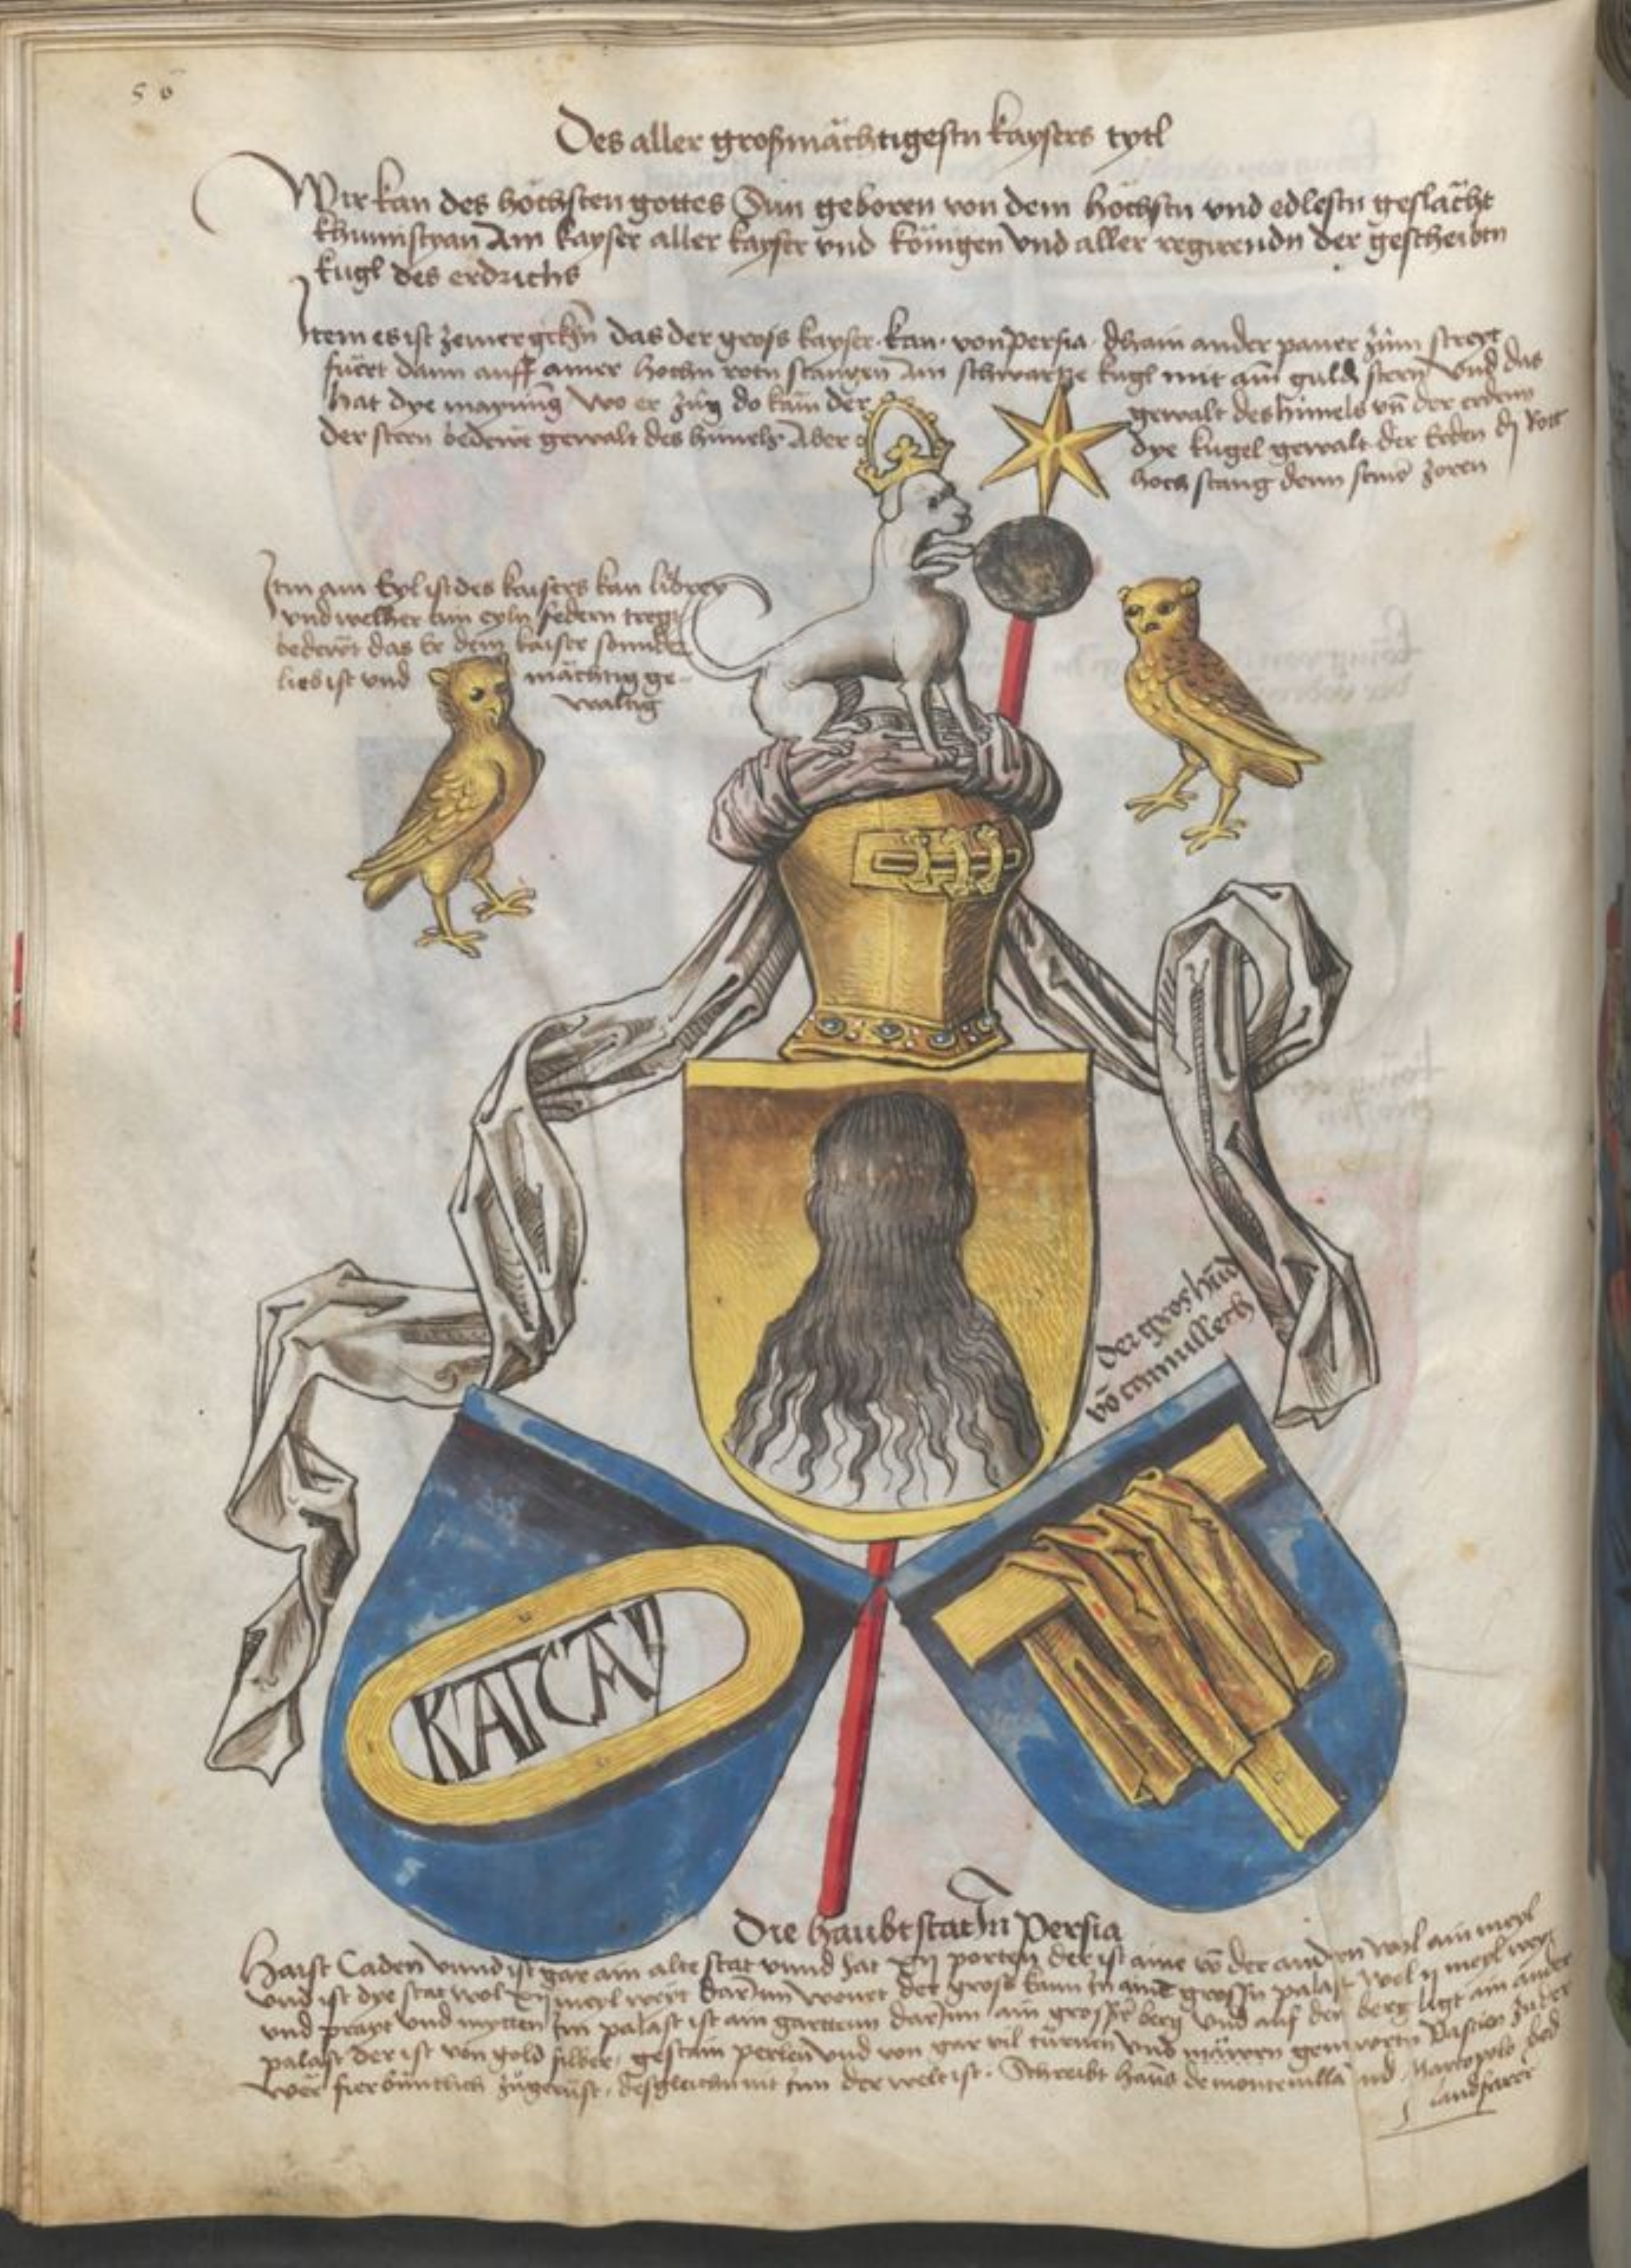 56
Des aller großmächtigestn kaysers tytl
Wir kan des höchsten gottes Sun geboren von dem höchstn vnd edlestn geslächt
Am kayser aller kayser vnd königen vnd aller regirendn der gescheibtn
kugl des erdrichs
Item es ist das der gros kayser · kan · von persia · ander paner zům streyt
fuert dann auff ainer hochn rotn stangen Am schwartze kugl mit aim guldn stern vnd das
hat dye maynung wo er zug do kam der gewalt des himels vñ der erden
der stern bedewt gewalt des himels Aber dye kugel gewalt der Erden dj Rott
hoch stang denn seine zoren
Itm am Eyl ist des kaisers kan librey
vnd welher ain eyln federn tregt
bedewt das Er dem kaiser sunder
lieb ist vnd mächtig ge-
waltig
der gros hūd
vō camullech
KATCAY
Die haubtstat In Persia
Haist Caden vnnd ist gar ain alte stat vnnd hat xij porten der ist aine vō der andern wol ain meyl
vnd ist dye stat wol xij meyl weyt Darinn wonet der gross kann in aim grossn palast wol ij meyl weyt
vnd prayt vnd mytten Im palast ist ain garttenn darInn ain grosser berg vnd auf den berg ligt ain ander
palast der ist von gold silber, gestain perlen vnd von gar vil türnen vnd mawrn
desgleichn nit inn der welt ist · Schreibt hanns de monteuilla vnd Marcopolo
landfarer